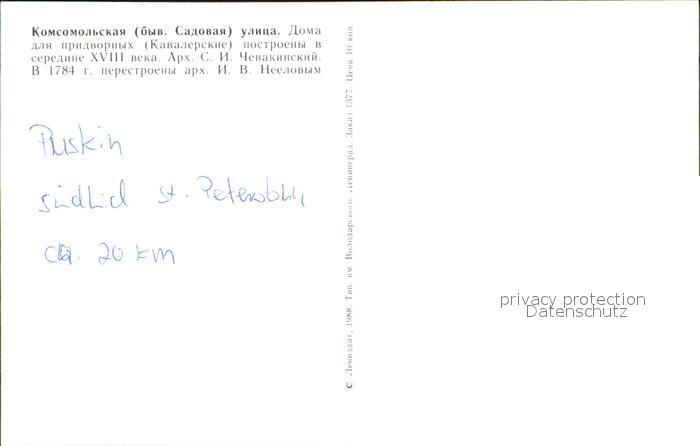 Комсомольская (быв. Садовая) улица. Дома
для придворных (Кавалерские) построены в
середине XVIII века. Арх. С. И. Чевакинский.
В 1784 г. перестроены арх. И. В. Нееловым
Puskin
südlich St. Petersburg
ca. 20 km
© Лениздат, 1988. Тип. им. Володарского. Ленинград. Заказ 1377. Цена 10 коп.
privacy protection
Datenschutz